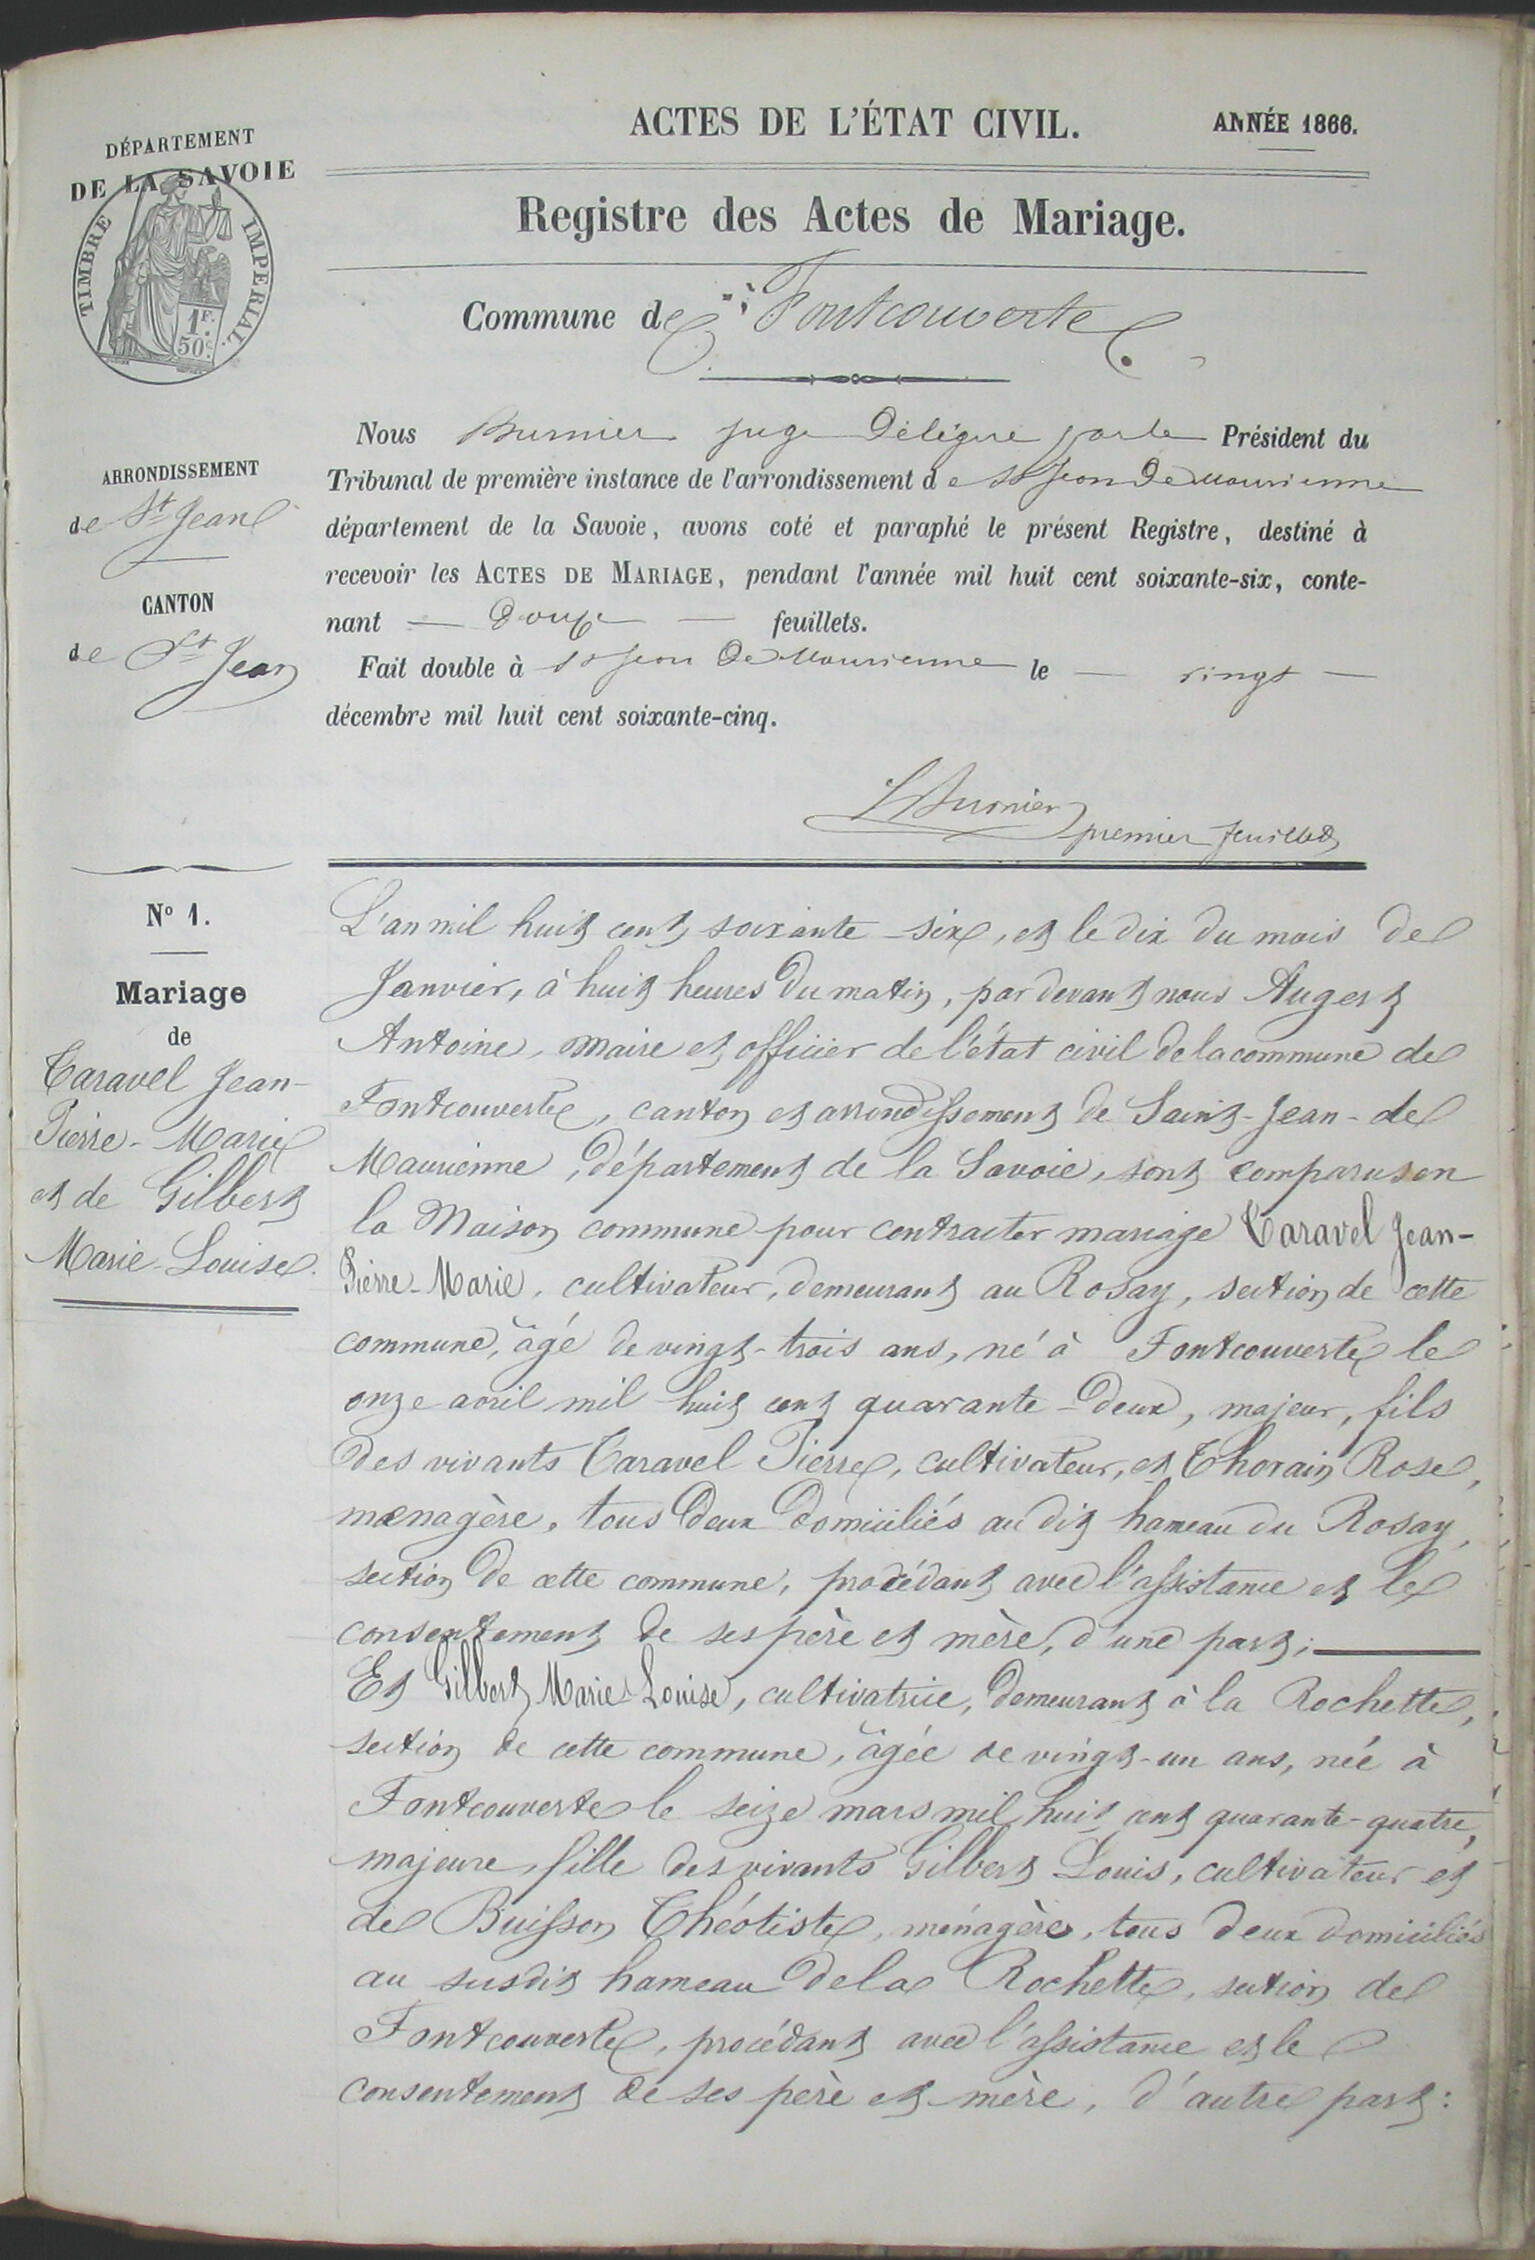 ACTES DE L'ÉTAT CIVIL.
ANNÉE 1866.
DÉPARTEMENT
DE LA SAVOIE
TIMBRE IMPERIAL.
1 F.
50 C.
Registre des Actes de Mariage.
Commune de Fontcouverte
ARRONDISSEMENT
de St Jean
CANTON
de St Jean
Nous Burnier juge Délégué par le Président du
Tribunal de première instance de l'arrondissement de St Jean De Maurienne
département de la Savoie, avons coté et paraphé le présent Registre, destiné à
recevoir les ACTES DE MARIAGE, pendant l'année mil huit cent soixante-six, conte-
nant — Douze — feuillets.
Fait double à St Jean De Maurienne le — vingt —
décembre mil huit cent soixante-cinq.
Burnier
premier feuillet
N° 1.
Mariage
de
Taravel Jean-
Pierre-Marie
et de Gilbert
Marie-Louise.
L'an mil huit cent soixante-six, et le dix du mois de
Janvier, à huit heures du matin, par devant nous Augert
Antoine, maire et officier de l'état civil de la commune de
Fontcouverte, canton et arrondissement de Saint-Jean-de
Maurienne, département de la Savoie, sont comparus en
la Maison commune pour contracter mariage Taravel Jean-
Pierre-Marie, cultivateur, demeurant au Rosay, section de cette
commune, âgé de vingt-trois ans, né à Fontcouverte le
onze avril mil huit cent quarante-deux, majeur, fils
des vivants Taravel Pierre, cultivateur, et Thorain Rose,
menagère, tous deux domiciliés au dit hameau du Rosay,
section de cette commune, procédant avec l'assistance et le
consentement de ses père et mère, d'une part;
Et Gilbert Marie-Louise, cultivatrice, demeurant à la Rochette,
section de cette commune, âgée de vingt-un ans, née à
Fontcouverte le seize mars mil huit cent quarante-quatre,
majeure, fille des vivants Gilbert Louis, cultivateur et
de Buisson Théotiste, ménagère, tous deux domiciliés
au susdit hameau de la Rochette, section de
Fontcouverte, procédant avec l'assistance et le
consentement de ses père et mère, d'autre part: